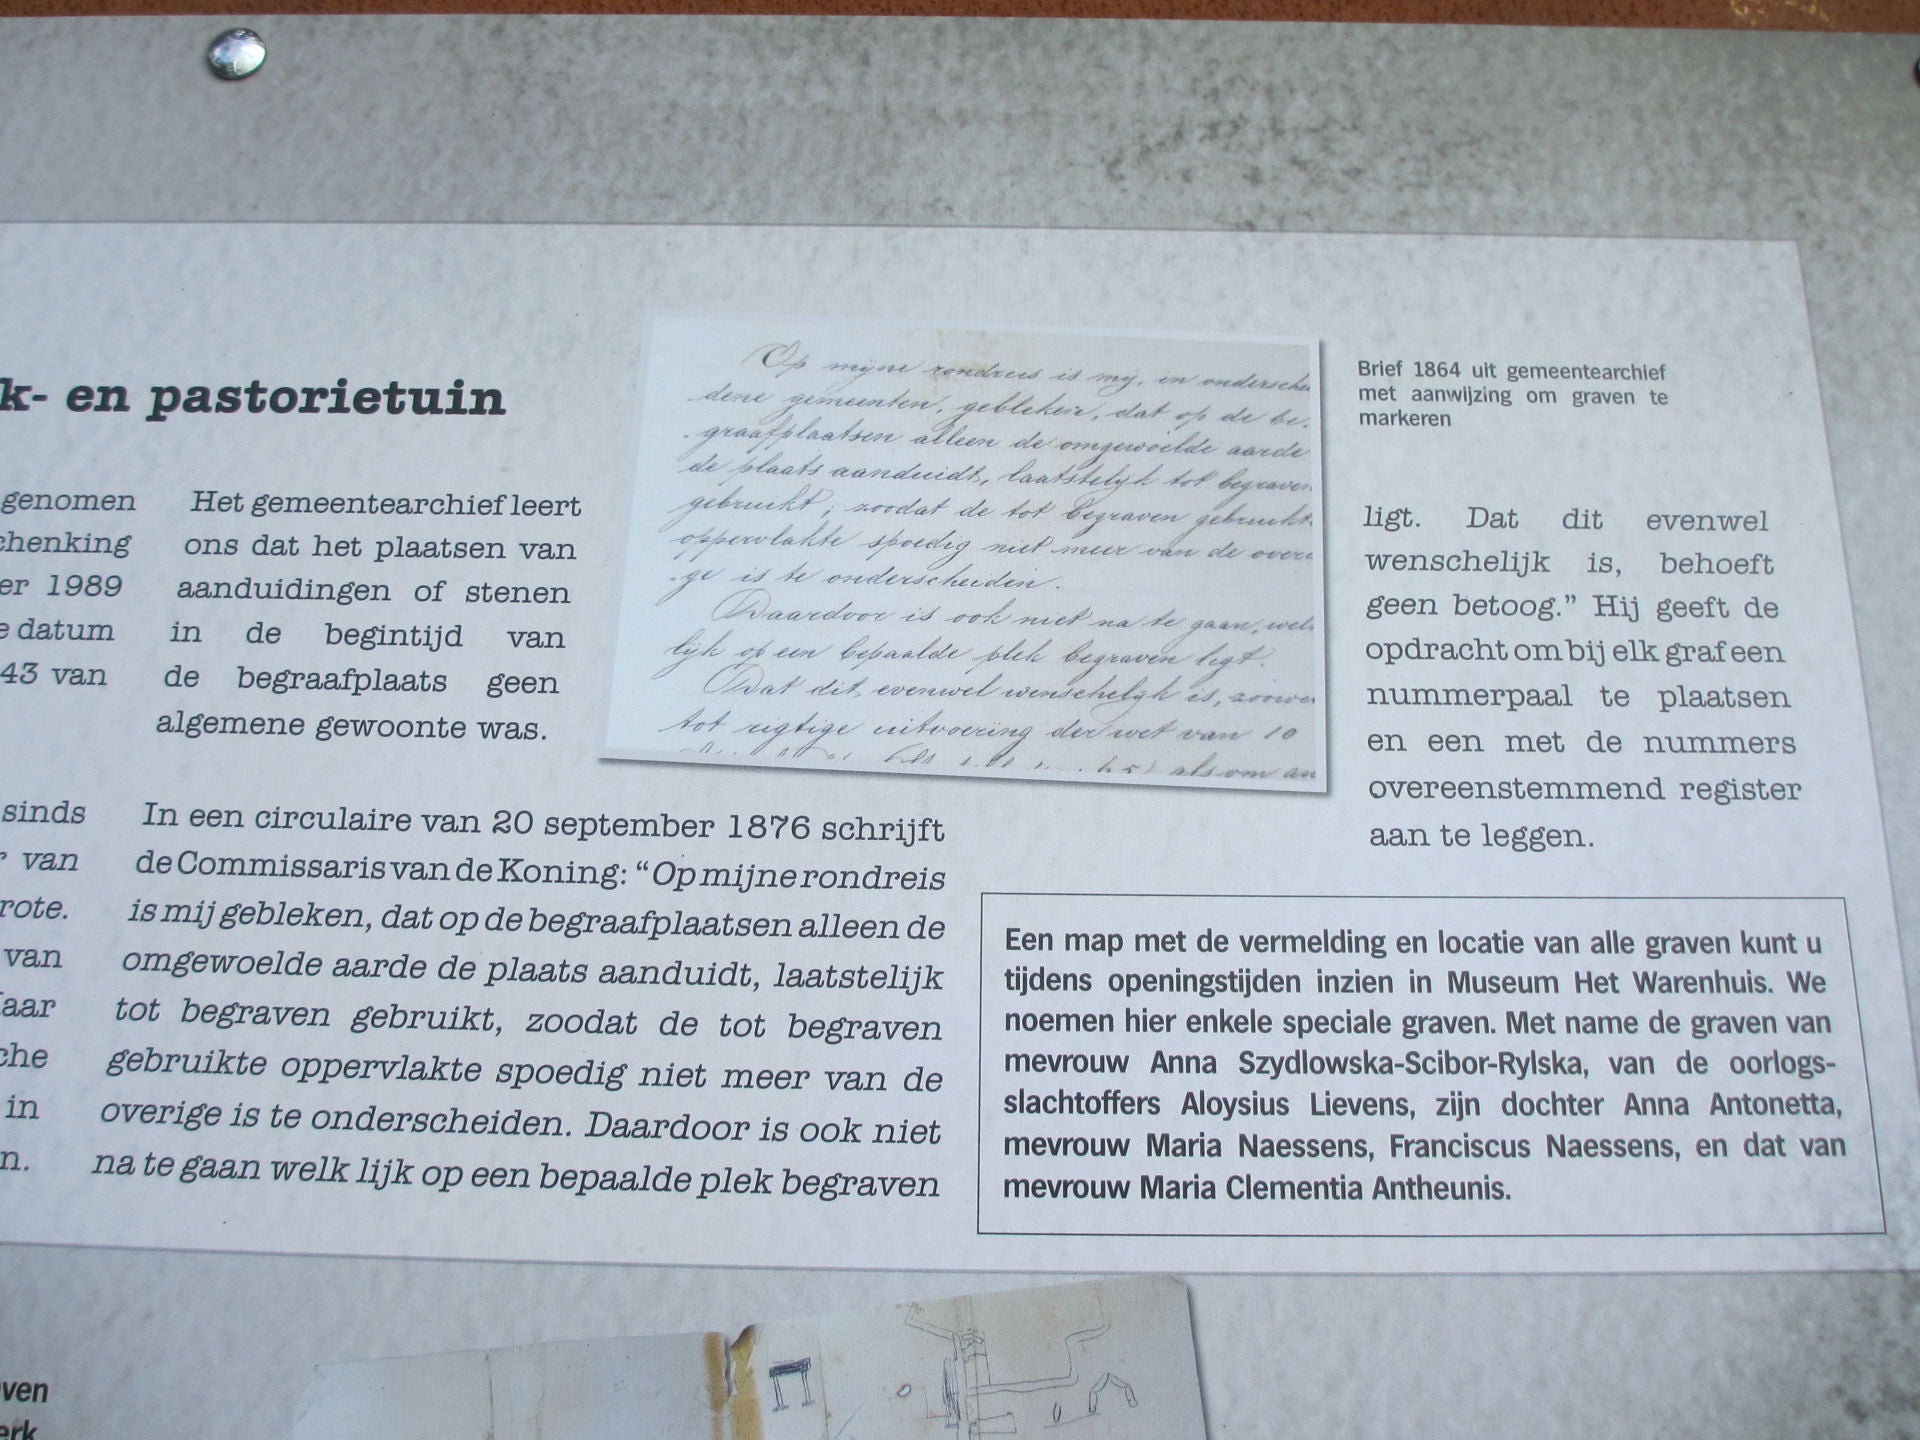 k- en pastorietuin
genomen
chenking
er 1989
e datum
43 van
sinds
van
rote.
van
aar
che
in
n.
Het gemeentearchief leert
ons dat het plaatsen van
aanduidingen of stenen
in de begintijd van
de begraafplaats geen
algemene gewoonte was.
In een circulaire van 20 september 1876 schrijft
de Commissaris van de Koning: “Op mijne rondreis
is mij gebleken, dat op de begraafplaatsen alleen de
omgewoelde aarde de plaats aanduidt, laatstelijk
tot begraven gebruikt, zoodat de tot begraven
gebruikte oppervlakte spoedig niet meer van de
overige is te onderscheiden. Daardoor is ook niet
na te gaan welk lijk op een bepaalde plek begraven
Op mijne rondreis is my, in ondersche
dene gemeenten, gebleken, dat op de be-
graafplaatsen alleen de omgewoelde aarde
de plaats aanduidt, laatstelijk tot begraven
gebruikt; zoodat de tot begraven gebruikt
oppervlakte spoedig niet meer van de overi
-ge is te onderscheiden.
Daardoor is ook niet na te gaan, wel
lijk op een bepaalde plek begraven ligt.
Dat dit evenwel wenschelijk is, zoowe
tot rigtige uitvoering der wet van 10
als om an
Brief 1864 uit gemeentearchief
met aanwijzing om graven te
markeren
ligt. Dat dit evenwel
wenschelijk is, behoeft
geen betoog.” Hij geeft de
opdracht om bij elk graf een
nummerpaal te plaatsen
en een met de nummers
overeenstemmend register
aan te leggen.
Een map met de vermelding en locatie van alle graven kunt u
tijdens openingstijden inzien in Museum Het Warenhuis. We
noemen hier enkele speciale graven. Met name de graven van
mevrouw Anna Szydlowska-Scibor-Rylska, van de oorlogs-
slachtoffers Aloysius Lievens, zijn dochter Anna Antonetta,
mevrouw Maria Naessens, Franciscus Naessens, en dat van
mevrouw Maria Clementia Antheunis.
ven
erk